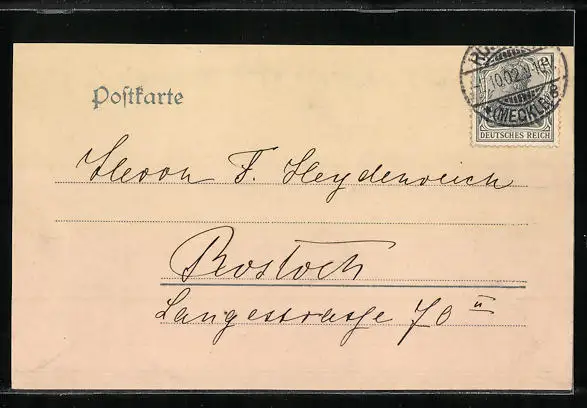 Postkarte
10.02
(MECKLB)
DEUTSCHES REICH
Herrn F. Heydenreich
Rostock
Langestrasse 70 II